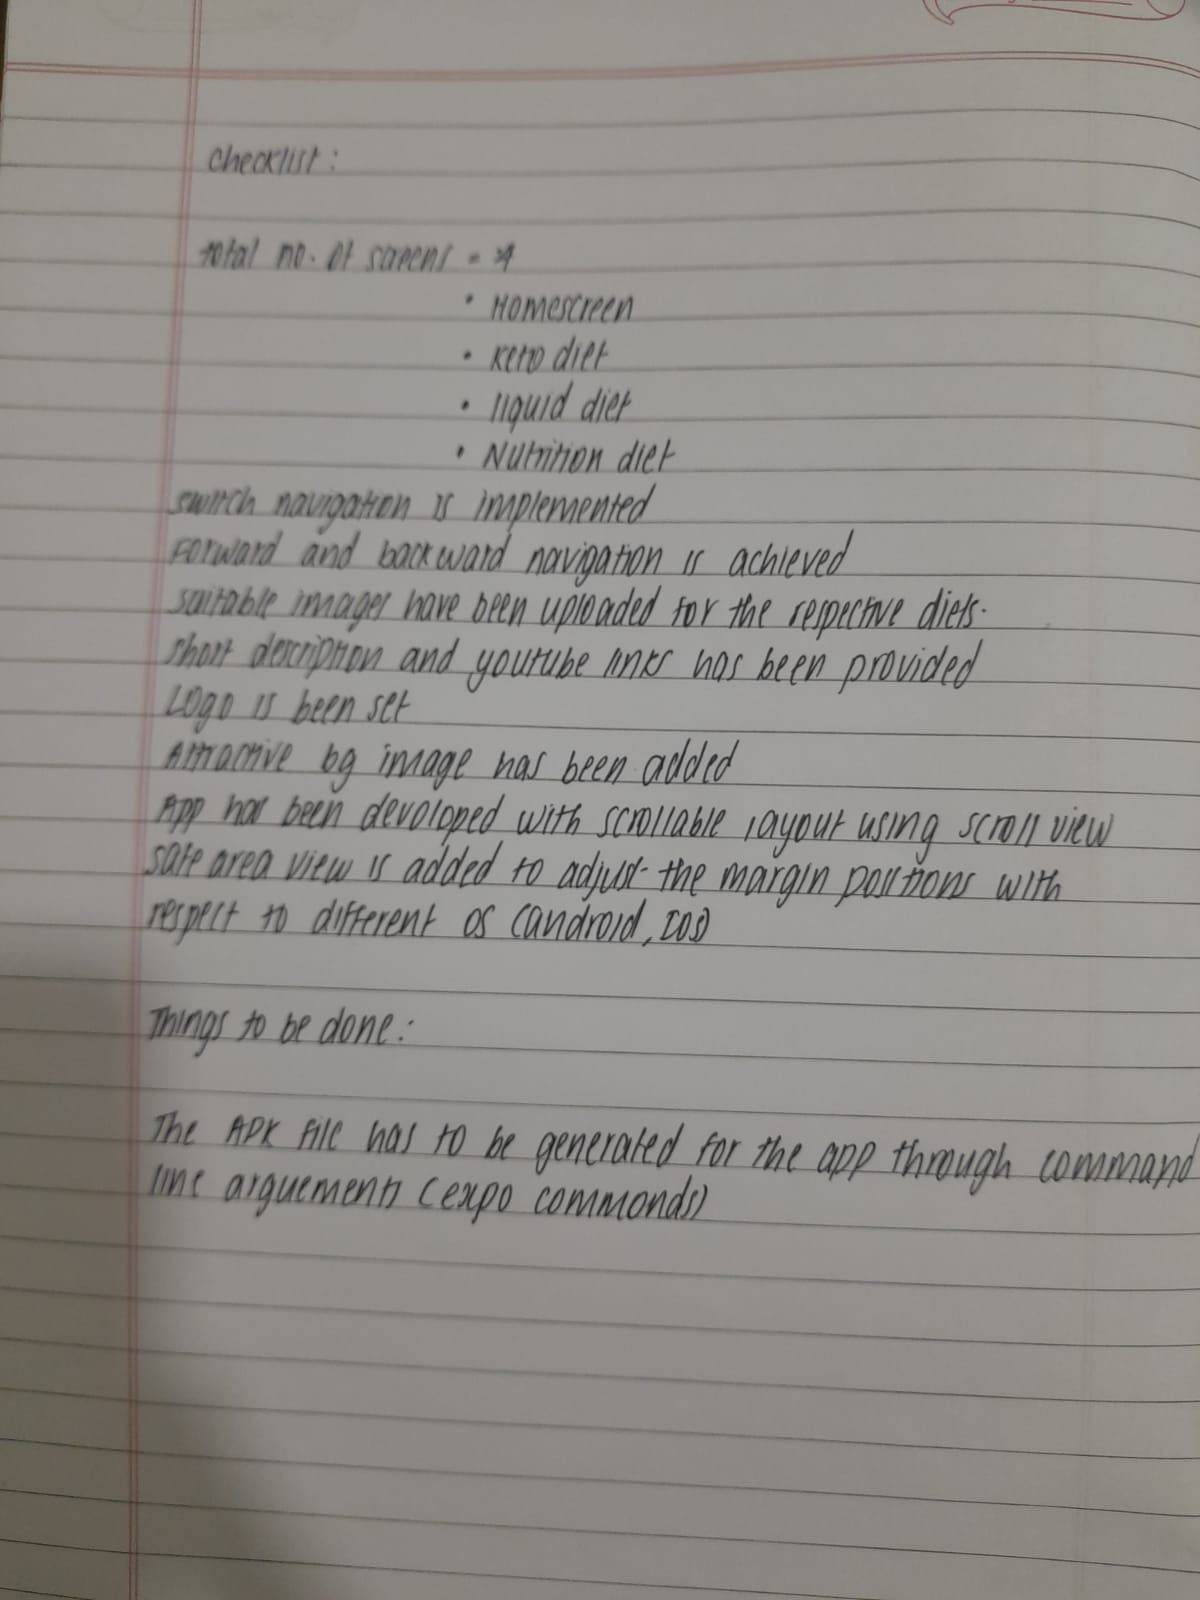 Checklist:
total no. of screens = 4
• Homescreen
• Keto diet
• liquid diet
• Nutrition diet
switch navigation is implemented
Forward and backward navigation is achieved
suitable images have been uploaded for the respective diets.
short description and youtube links has been provided
Logo is been set
Attractive bg image has been added
App has been devoloped with scrollable layout using scroll view
safe area view is added to adjust the margin positions with
respect to different os (android, IOS)
Things to be done:
The APK file has to be generated for the app through command
line arguements (expo commonds)